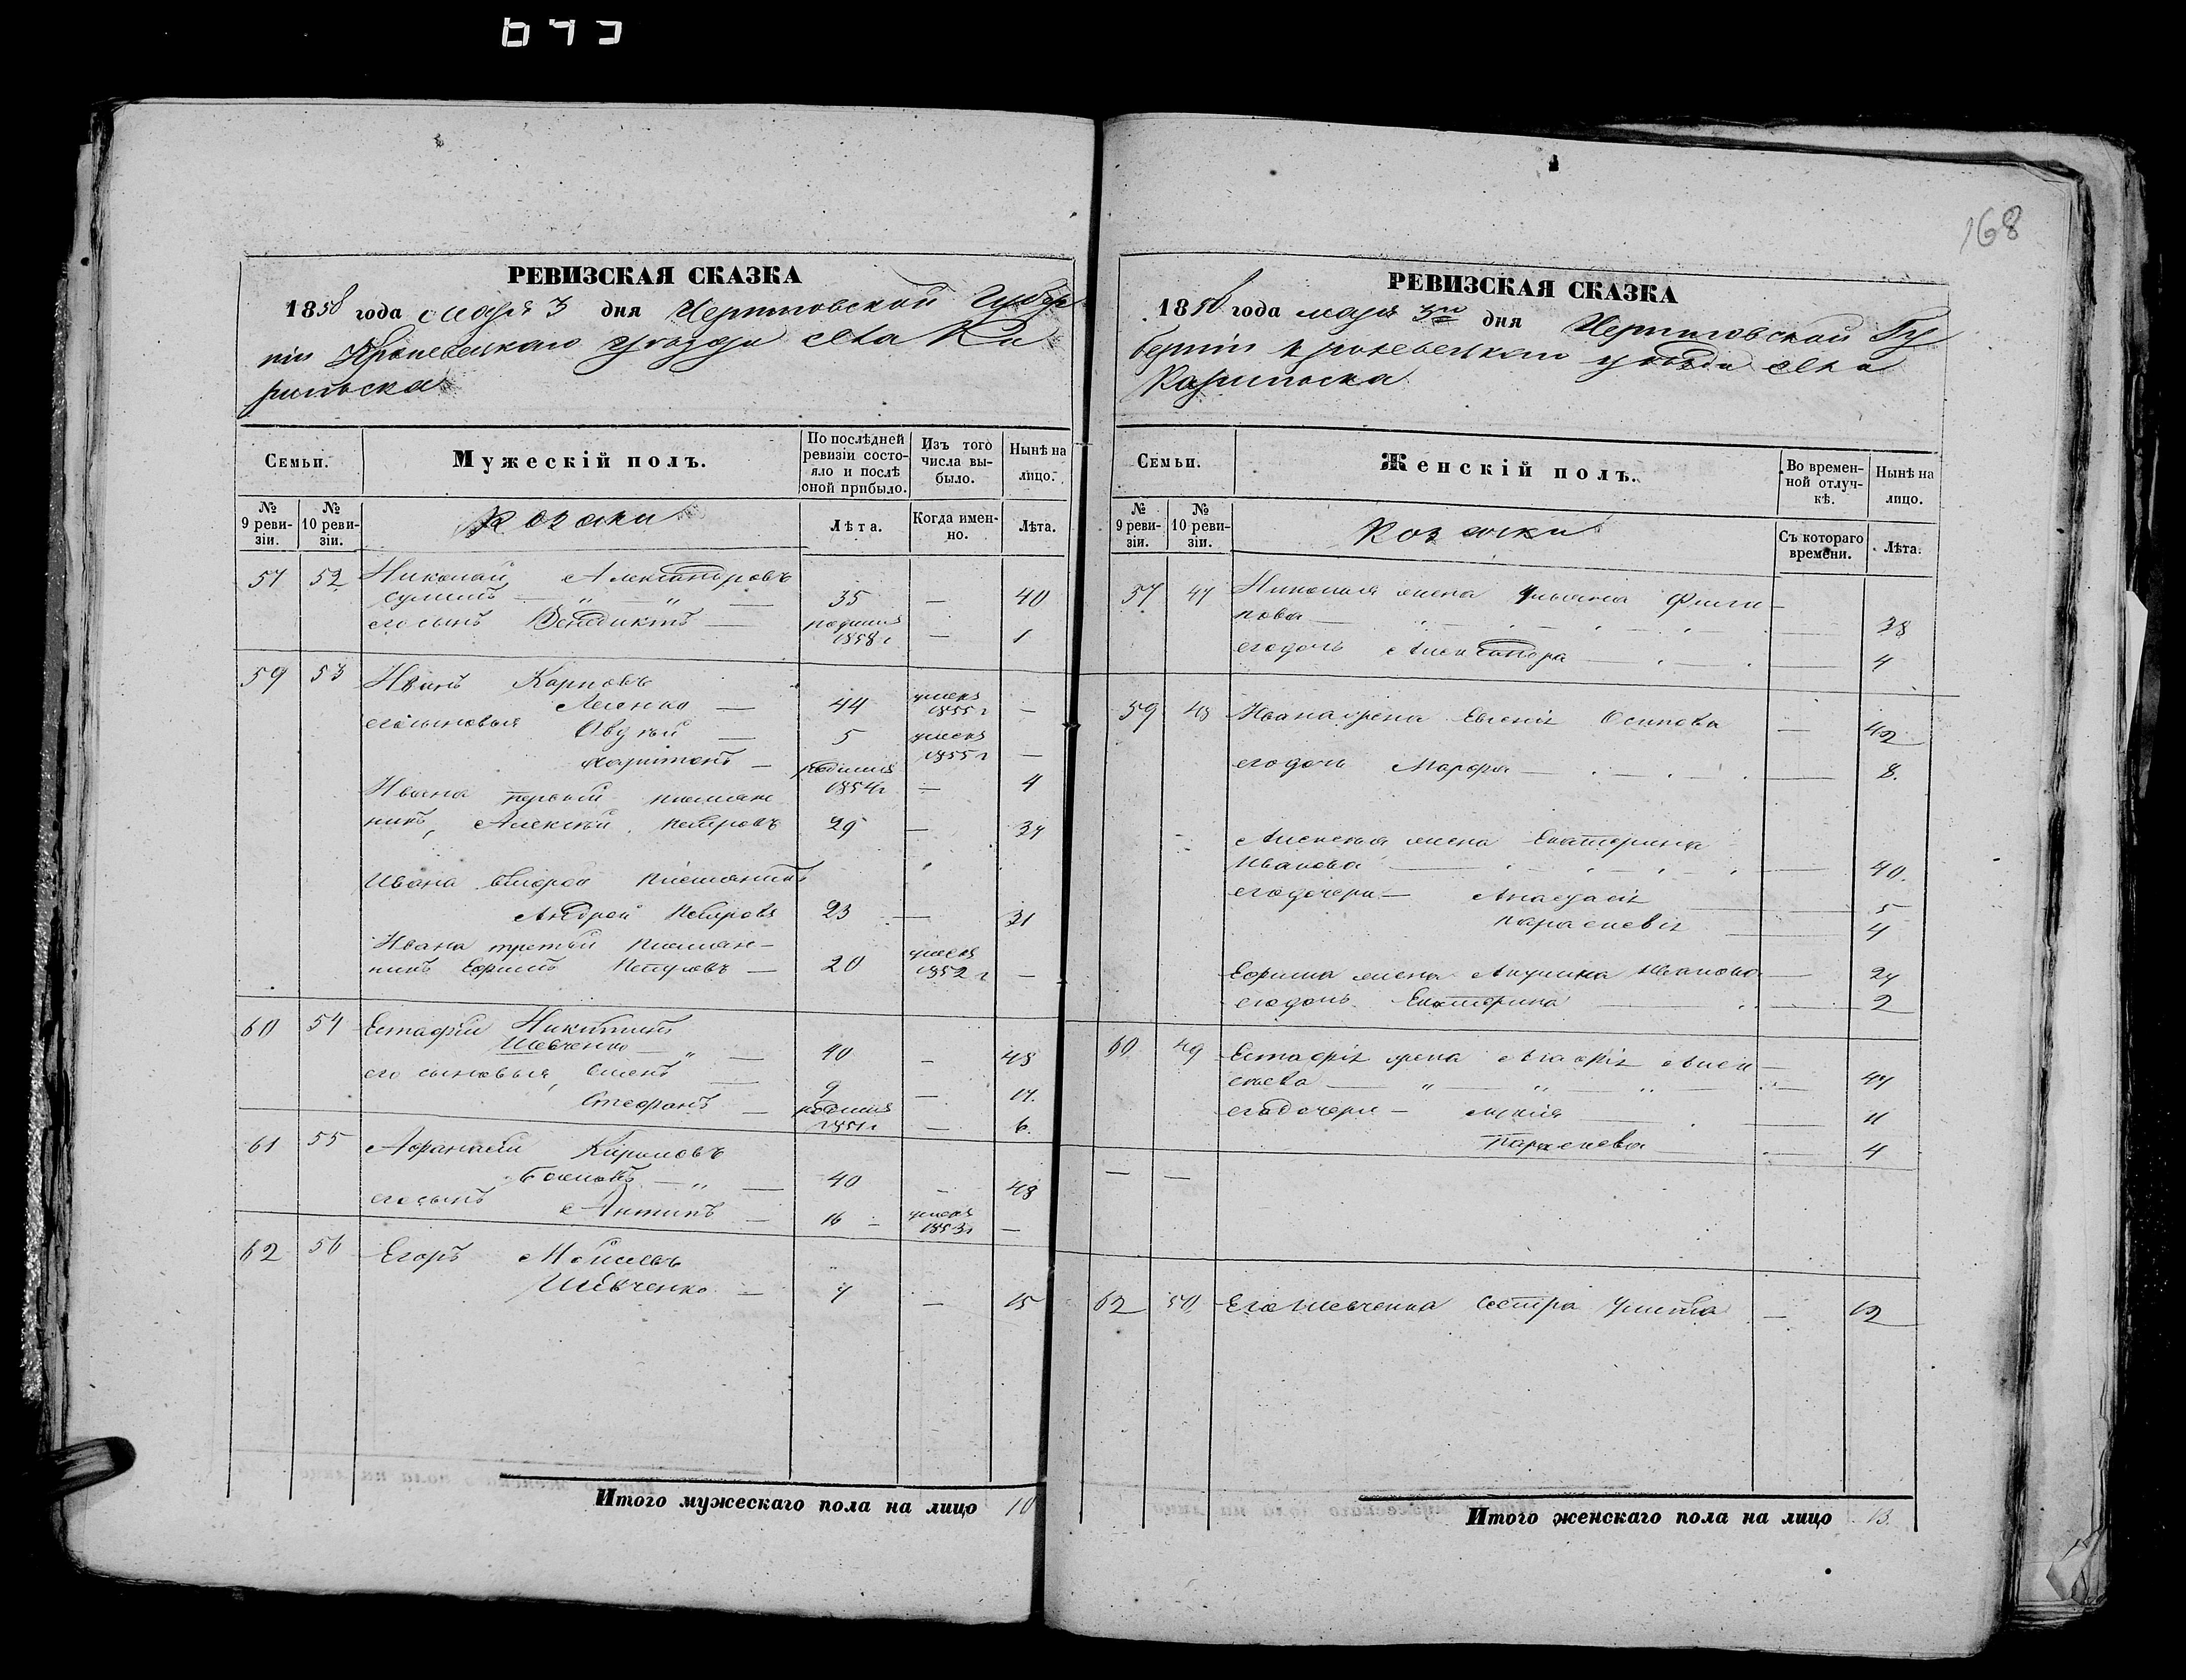 168
РЕВИЗСКАЯ СКАЗКА
1858 года мая 3 дня Черниговской Губер
ніи Кролевецкаго уѣзда села Ка
рильска
Семьи.
Мужескій полъ.
По послѣдней ревизіи состояло и послѣ оной прибыло.
Изъ того числа выбыло.
Нынѣ на лицо.
№ 9 ревизіи.
№ 10 ревизіи.
Козаки
Лѣта.
Когда именно.
Лѣта.
57 52 Николай Александровъ
— " — " — 35 — 40
его сынъ Венедиктъ — родился 1858 г — 1
59 53 Иванъ Карповъ
— 44 умеръ 1855 г —
его сыновья — 5 умеръ 1855 г —
Харитонъ — родился 1854 г — 4
Ивана первый племян
никъ, Алексѣй Петровъ 29 — 37
Ивана второй племянникъ
Андрей Петровъ 23 — 31
Ивана третій племян-
никъ Ефимъ Петровъ — 20 умеръ 1852 г —
60 54 Естафій Никитинъ
Шевченко — " — 40 — 48
его сыновья, — 9 — 17.
Стефанъ — родился 1851 г — 6.
61 55 Афанасій Карповъ
— " — 40 — 48
его сынъ Антипъ — 16 — умеръ 1853 г —
62 56 Егоръ Мойсеевъ
Шевченко — 7 — 15
Итого мужескаго пола на лицо 10
РЕВИЗСКАЯ СКАЗКА
1858 года мая 3го дня Черниговской Гу
берніи Кролевецкаго уѣзда села
Карильска
Семьи.
Женскій полъ.
Во временной отлучкѣ.
Нынѣ на лицо.
№ 9 ревизіи.
№ 10 ревизіи.
Козачки
Съ котораго времени.
Лѣта.
57 47 Николая жена Ульяна Фили-
пова — 38
его дочь Александра — 4
59 48 Ивана жена Евгенія Осипова — 42
его дочь Марфа — 8.
Алексѣя жена Екатерина
Иванова — 40.
его дочери — Анастасія — 5
Параскевія — 4
Ефима жена Акулина Иванова — 27
его дочь Екатерина — 2
60 49 Естафія жена Агафія Алек
сѣева — " — " — 47
его дочери — — 11
Параскева — 4
— —
62 50 Его Шевченка сестра Улита — 12
Итого женскаго пола на лицо 13.